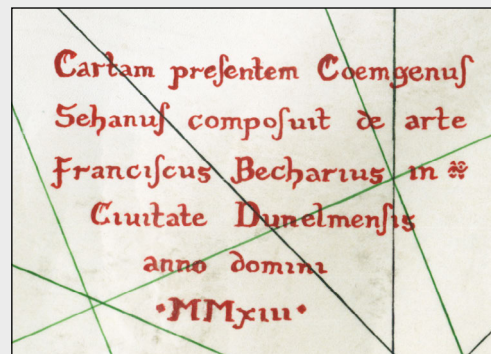 Cartam preſentem Coemgenuſ
Sehanuſ compoſuit de arte
Franciſcus Becharius in
Ciuitate Dunelmenſis
anno domini
·MMxiii·